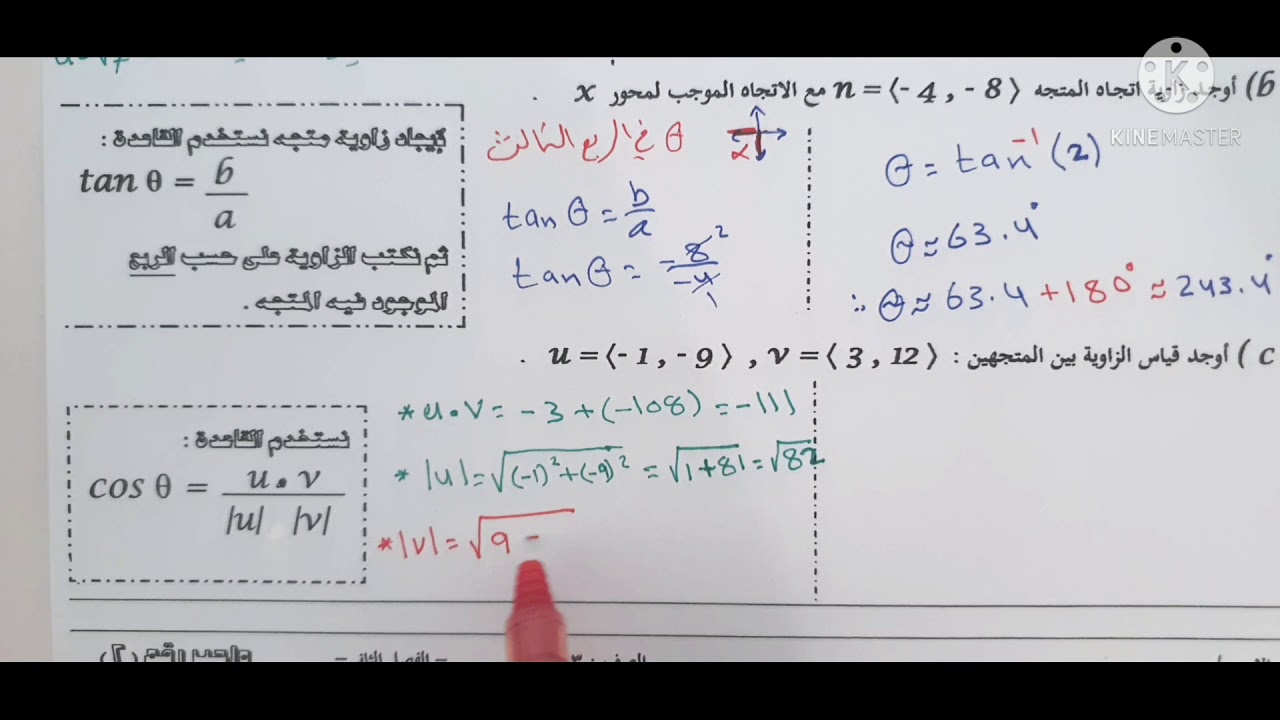 b) أوجد زاوية اتجاه المتجه n = ⟨- 4 , - 8⟩ مع الاتجاه الموجب لمحور x .
KINEMASTER
لإيجاد زاوية متجه نستخدم القاعدة :
tan θ = b/a
ثم نكتب الزاوية على حسب الربع
الموجود فيه المتجه .
θ في الربع الثالث
tan θ = b/a
tan θ = -8/-4
2
1
θ = tan⁻¹ (2)
θ ≈ 63.4°
∴ θ ≈ 63.4 + 180° ≈ 243.4°
c ) أوجد قياس الزاوية بين المتجهين : u = ⟨- 1 , - 9⟩ , v = ⟨3 , 12⟩ .
نستخدم القاعدة :
cos θ = u . v / |u| |v|
* u . v = -3 + (-108) = -111
* |u| = √(-1)² + (-9)² = √1+81 = √82
* |v| = √9 -